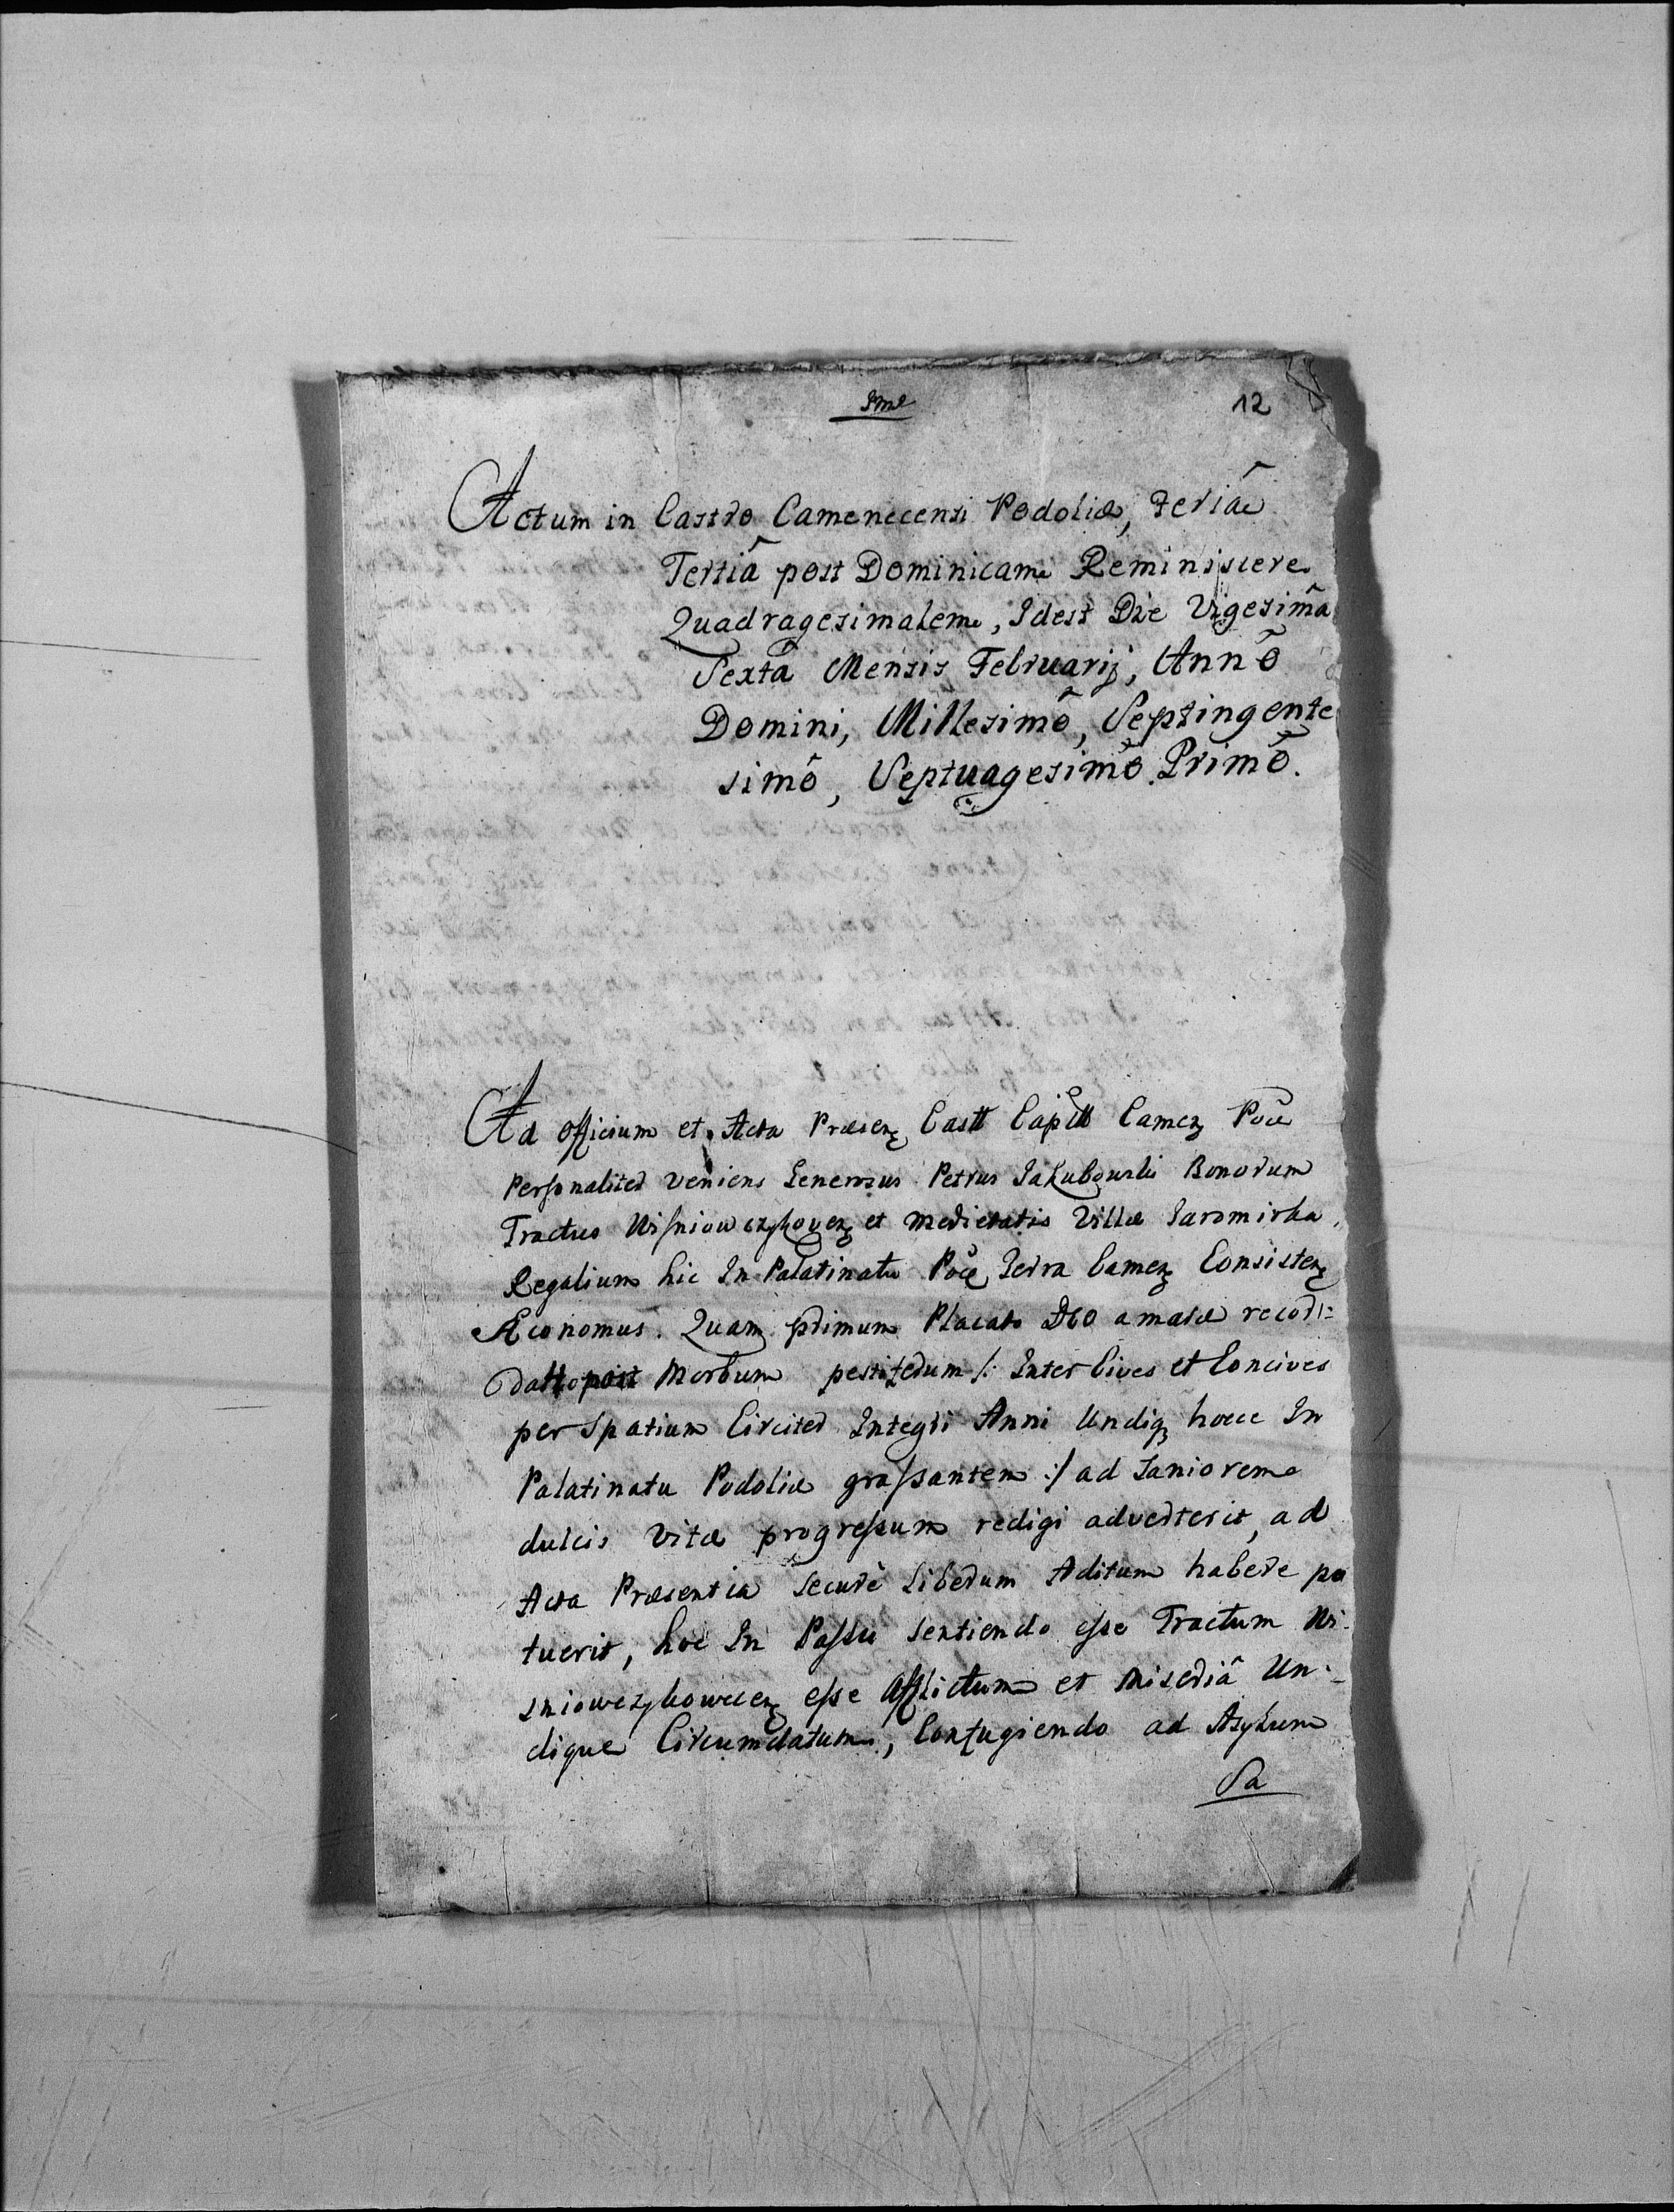 12
Actum in Castro Camenecensi Podoliæ, Feriâ
Tertiâ post Dominicam Reminiscere
Quadragesimalem, Idest Die Vigesimâ
Sextâ Mensis Februarij, Annô
Domini, Millesimô, Septingente
simô, Septuagesimô Primô.
Ad Officium et Acta Præsenę Castt Capitt Camenę Poæ
Personaliter veniens Generosus Petrus Jakubowski Bonorum
Tractus Wisniowczykovenę et medietatis Villæ Jaromirka,
Regalium hic In Palatinatu Poæ Terra Camenę Consistenę
Æconomus. Quam primum Placato DEO amaræ recor=
datto post Morbum pestiferum /: Inter Cives et Concives
per Spatium Circiter Integri Anni Undiqꝫ hocce In
Palatinatu Podoliæ grassantem :/ ad Saniorem
dulcis Vitæ progressum redigi adverterit, ad
Acta Præsentia Securè Liberum Aditum habere po
tuerit, hoc In Passu Sentiendo esse Tractum Wi-
sniowczykowecenę esse Afflictum et Miseriâ Un-
dique Circumdatum, Confugiendo ad Asylum
Sa